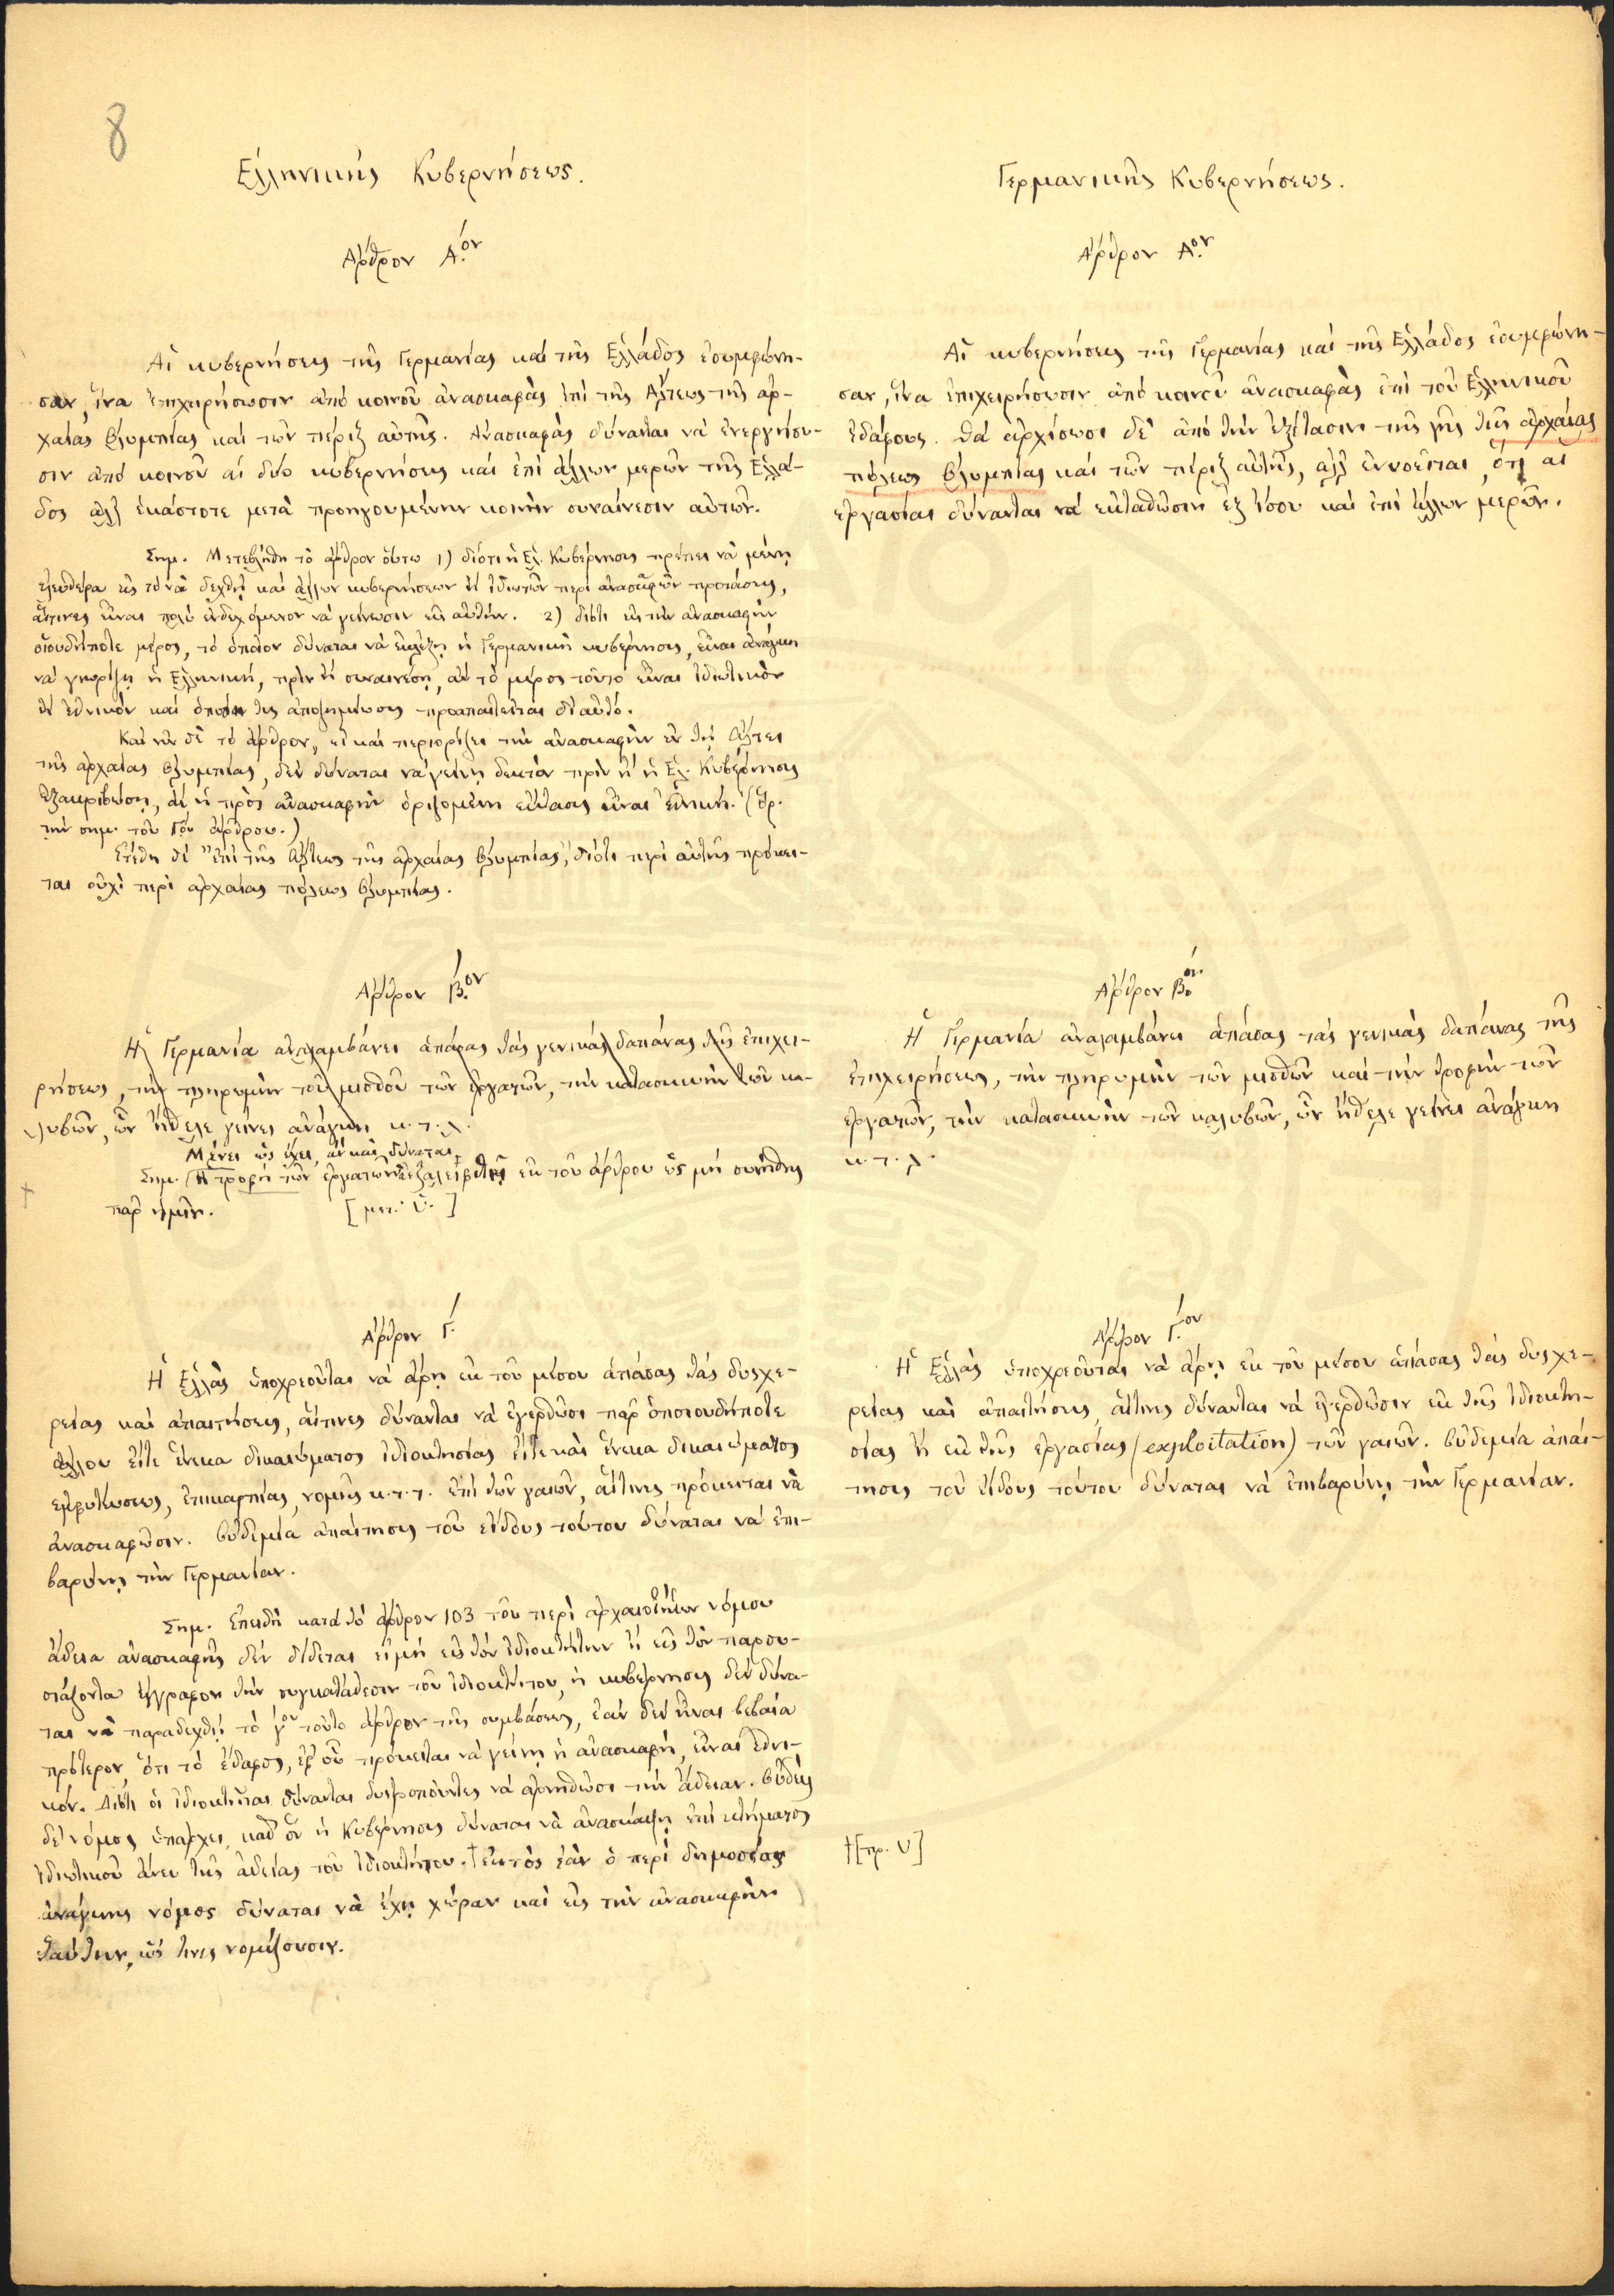 8
Ἑλληνικῆς Κυβερνήσεως.
Ἄρθρον Α.ον
Αἱ κυβερνήσεις τῆς Γερμανίας καὶ τῆς Ἑλλάδος ἐσυμφώνη-
σαν, ἵνα ἐπιχειρήσωσιν ἀπὸ κοινοῦ ἀνασκαφὰς ἐπὶ τῆς Ἄλτεως τῆς ἀρ-
χαίας Ὀλυμπίας καὶ τῶν πέριξ αὐτῆς. Ἀνασκαφὰς δύνανται νὰ ἐνεργήσω-
σιν ἀπὸ κοινοῦ αἱ δύο κυβερνήσεις καὶ ἐπὶ ἄλλων μερῶν τῆς Ἑλλά-
δος ἀλλ' ἑκάστοτε μετὰ προηγουμένην κοινὴν συναίνεσιν αὐτῶν.
Σημ. Μετεβλήθη τὸ ἄρθρον οὕτω 1) διότι ἡ Ἑλ. Κυβέρνησις πρέπει νὰ μένῃ
ἐλευθέρα εἰς τὸ νὰ δεχθῇ καὶ ἄλλων κυβερνήσεων ἢ ἰδιωτῶν περὶ ἀνασκαφῶν προτάσεις,
αἵτινες εἶναι πολὺ ἐνδεχόμενον νὰ γείνωσιν εἰς αὐτήν. 2) διότι εἰς τὴν ἀνασκαφὴν
οἱουδήποτε μέρους, τὸ ὁποῖον δύναται νὰ ἐκλέξῃ ἡ Γερμανικὴ κυβέρνησις, εἶναι ἀνάγκη
νὰ γνωρίζῃ ἡ Ἑλληνική, πρὶν ἢ συναινέσῃ, ἂν τὸ μέρος τοῦτο εἶναι ἰδιωτικὸν
ἢ ἐθνικόν καὶ ὁποία τις ἀποζημίωσις προαπαιτεῖται δι' αὐτό.
Καὶ νῦν δὲ τὸ ἄρθρον, εἰ καὶ περιορίζει τὴν ἀνασκαφὴν ἐν τῇ Ἄλτει
τῆς ἀρχαίας Ὀλυμπίας, δὲν δύναται νὰ γείνῃ δεκτὸν πρὶν ἢ ἡ Ἑλ. Κυβέρνησις
ἐξακριβώσῃ, ἂν ἡ πρὸς ἀνασκαφὴν ὁριζομένη ἔκτασις εἶναι ἐθνική. (ὅρ.
τὴν σημ. τοῦ Γου ἄρθρου.)
Ἐτέθη δὲ "ἐπὶ τῆς Ἄλτεως τῆς ἀρχαίας Ὀλυμπίας", διότι περὶ αὐτῆς πρόκει-
ται οὐχὶ περὶ ἀρχαίας πόλεως Ὀλυμπίας.
Ἄρθρον Β.ον
Ἡ Γερμανία ἀναλαμβάνει ἁπάσας τὰς γενικὰς δαπάνας τῆς ἐπιχει-
ρήσεως, τὴν πληρωμὴν τοῦ μισθοῦ τῶν ἐργατῶν, τὴν κατασκευὴν τῶν κα-
λυβῶν, ὧν ἤθελε γείνει ἀνάγκη κ.τ.λ.
Μένει ὡς ἔχει, ἂν καὶ δύναται
Σημ. (Ἡ τροφὴ τῶν ἐργατῶν νὰ ἐξαλειφθῇ ἐκ τοῦ ἄρθρου ὡς μὴ συνήθης
παρ' ἡμῖν.
Ἄρθρον Γ.
Ἡ Ἑλλὰς ὑποχρεοῦται νὰ ἄρῃ ἐκ τοῦ μέσου ἁπάσας τὰς δυσχε-
ρείας καὶ ἀπαιτήσεις, αἵτινες δύνανται νὰ ἐγερθῶσι παρ' ὁποιουδήποτε
ἄλλου εἴτε ἕνεκα δικαιώματος ἰδιοκτησίας εἴτε καὶ ἕνεκα δικαιώματος
ἐμφυτεύσεως, ἐπικαρπίας, νομῆς κ.τ.τ. ἐπὶ τῶν γαιῶν, αἵτινες πρόκειται νὰ
ἀνασκαφῶσιν. Οὐδεμία ἀπαίτησις τοῦ εἴδους τούτου δύναται νὰ ἐπι-
βαρύνῃ τὴν Γερμανίαν.
Σημ. Ἐπειδὴ κατὰ τὸ ἄρθρον 103 τοῦ περὶ ἀρχαιοτήτων νόμου
ἄδεια ἀνασκαφῆς δὲν δίδεται εἰμὴ εἰς τὸν ἰδιοκτήτην ἢ εἰς τὸν παρου-
σιάζοντα ἔγγραφον τὴν συγκατάθεσιν τοῦ ἰδιοκτήτου, ἡ κυβέρνησις δὲν δύνα-
ται νὰ παραδεχθῇ τὸ γ'ον τοῦτο ἄρθρον τῆς συμβάσεως, ἐὰν δὲν εἶναι βεβαία
πρότερον, ὅτι τὸ ἔδαφος, ἐφ' οὗ πρόκειται νὰ γείνῃ ἡ ἀνασκαφή, εἶναι ἐθνι-
κόν. Διότι οἱ ἰδιοκτῆται δύνανται δυστροποῦντες νὰ ἀρνηθῶσι τὴν ἄδειαν. Οὐδεὶς
δὲ νόμος ὑπάρχει, καθ' ὃν ἡ Κυβέρνησις δύναται νὰ ἀνασκάψῃ ἐπὶ κτήματος
ἰδιωτικοῦ ἄνευ τῆς ἀδείας τοῦ ἰδιοκτήτου. † ἐκτὸς ἐὰν ὁ περὶ δημοσίας
ἀνάγκης νόμος δύναται νὰ ἔχῃ χώραν καὶ εἰς τὴν ἀνασκαφὴν
ταύτην, ὡς τινες νομίζουσιν.
Γερμανικῆς Κυβερνήσεως.
Ἄρθρον Α.ον
Αἱ κυβερνήσεις τῆς Γερμανίας καὶ τῆς Ἑλλάδος ἐσυμφώνη-
σαν, ἵνα ἐπιχειρήσωσιν ἀπὸ κοινοῦ ἀνασκαφὰς ἐπὶ τοῦ Ἑλληνικοῦ
ἐδάφους. Θὰ ἀρχίσωσι δὲ ἀπὸ τὴν ἐξέτασιν τῆς γῆς τῆς ἀρχαίας
πόλεως Ὀλυμπίας καὶ τῶν πέριξ αὐτῆς, ἀλλ' ἐννοεῖται, ὅτι αἱ
ἐργασίαι δύνανται νὰ ἐκταθῶσιν ἐξ ἴσου καὶ ἐπὶ ἄλλων μερῶν.
Ἄρθρον Β.ον
Ἡ Γερμανία ἀναλαμβάνει ἁπάσας τὰς γενικὰς δαπάνας τῆς
ἐπιχειρήσεως, τὴν πληρωμὴν τῶν μισθῶν καὶ τὴν τροφὴν τῶν
ἐργατῶν, τὴν κατασκευὴν τῶν καλυβῶν, ὧν ἤθελε γείνει ἀνάγκη
κ.τ.λ.
Ἄρθρον Γ.ον
Ἡ Ἑλλὰς ὑποχρεοῦται νὰ ἄρῃ ἐκ τοῦ μέσου ἁπάσας τὰς δυσχε-
ρείας καὶ ἀπαιτήσεις, αἵτινες δύνανται νὰ ἐγερθῶσιν ἐκ τῆς ἰδιοκτη-
σίας ἢ ἐκ τῆς ἐργασίας (exploitation) τῶν γαιῶν. Οὐδεμία ἀπαί-
τησις τοῦ εἴδους τούτου δύναται νὰ ἐπιβαρύνῃ τὴν Γερμανίαν.